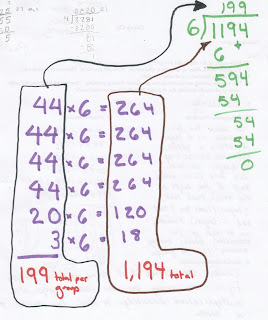 199
6)1194
6
594
54
54
54
0
44 × 6 = 264
44 × 6 = 264
44 × 6 = 264
44 × 6 = 264
20 × 6 = 120
3 × 6 = 18
199 total per group
1,194 total